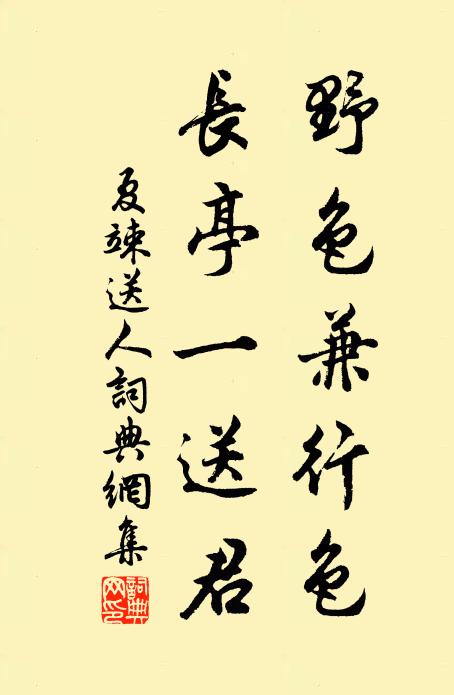 野色兼行色
長亭一送君
夏竦送人詞典網集
詞典網印